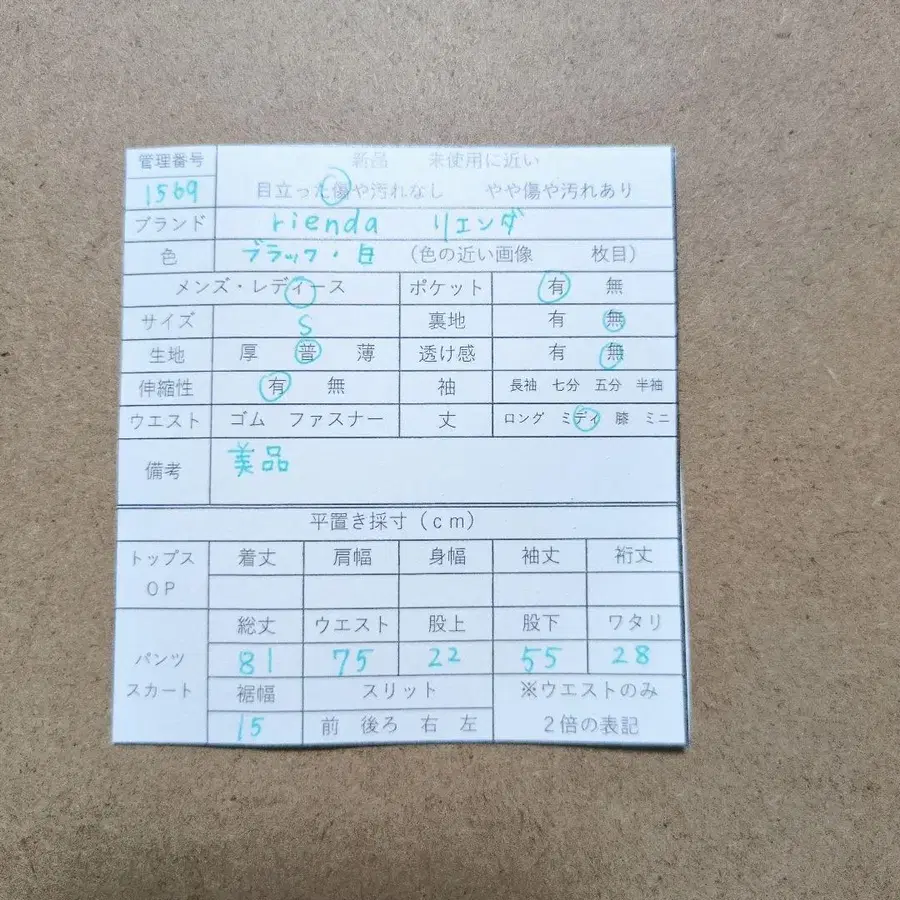 管理番号 新品 未使用に近い
1569 目立った傷や汚れなし やや傷や汚れあり
ブランド rienda リエンダ
色 ブラック・白 (色の近い画像 枚目)
メンズ・レディース ポケット 有 無
サイズ S 裏地 有 無
生地 厚 普 薄 透け感 有 無
伸縮性 有 無 袖 長袖 七分 五分 半袖
ウエスト ゴム ファスナー 丈 ロング ミディ 膝 ミニ
備考 美品
平置き採寸(cm)
トップス 着丈 肩幅 身幅 袖丈 裄丈
OP
総丈 ウエスト 股上 股下 ワタリ
パンツ 81 75 22 55 28
スカート 裾幅 スリット ※ウエストのみ
15 前 後ろ 右 左 2倍の表記